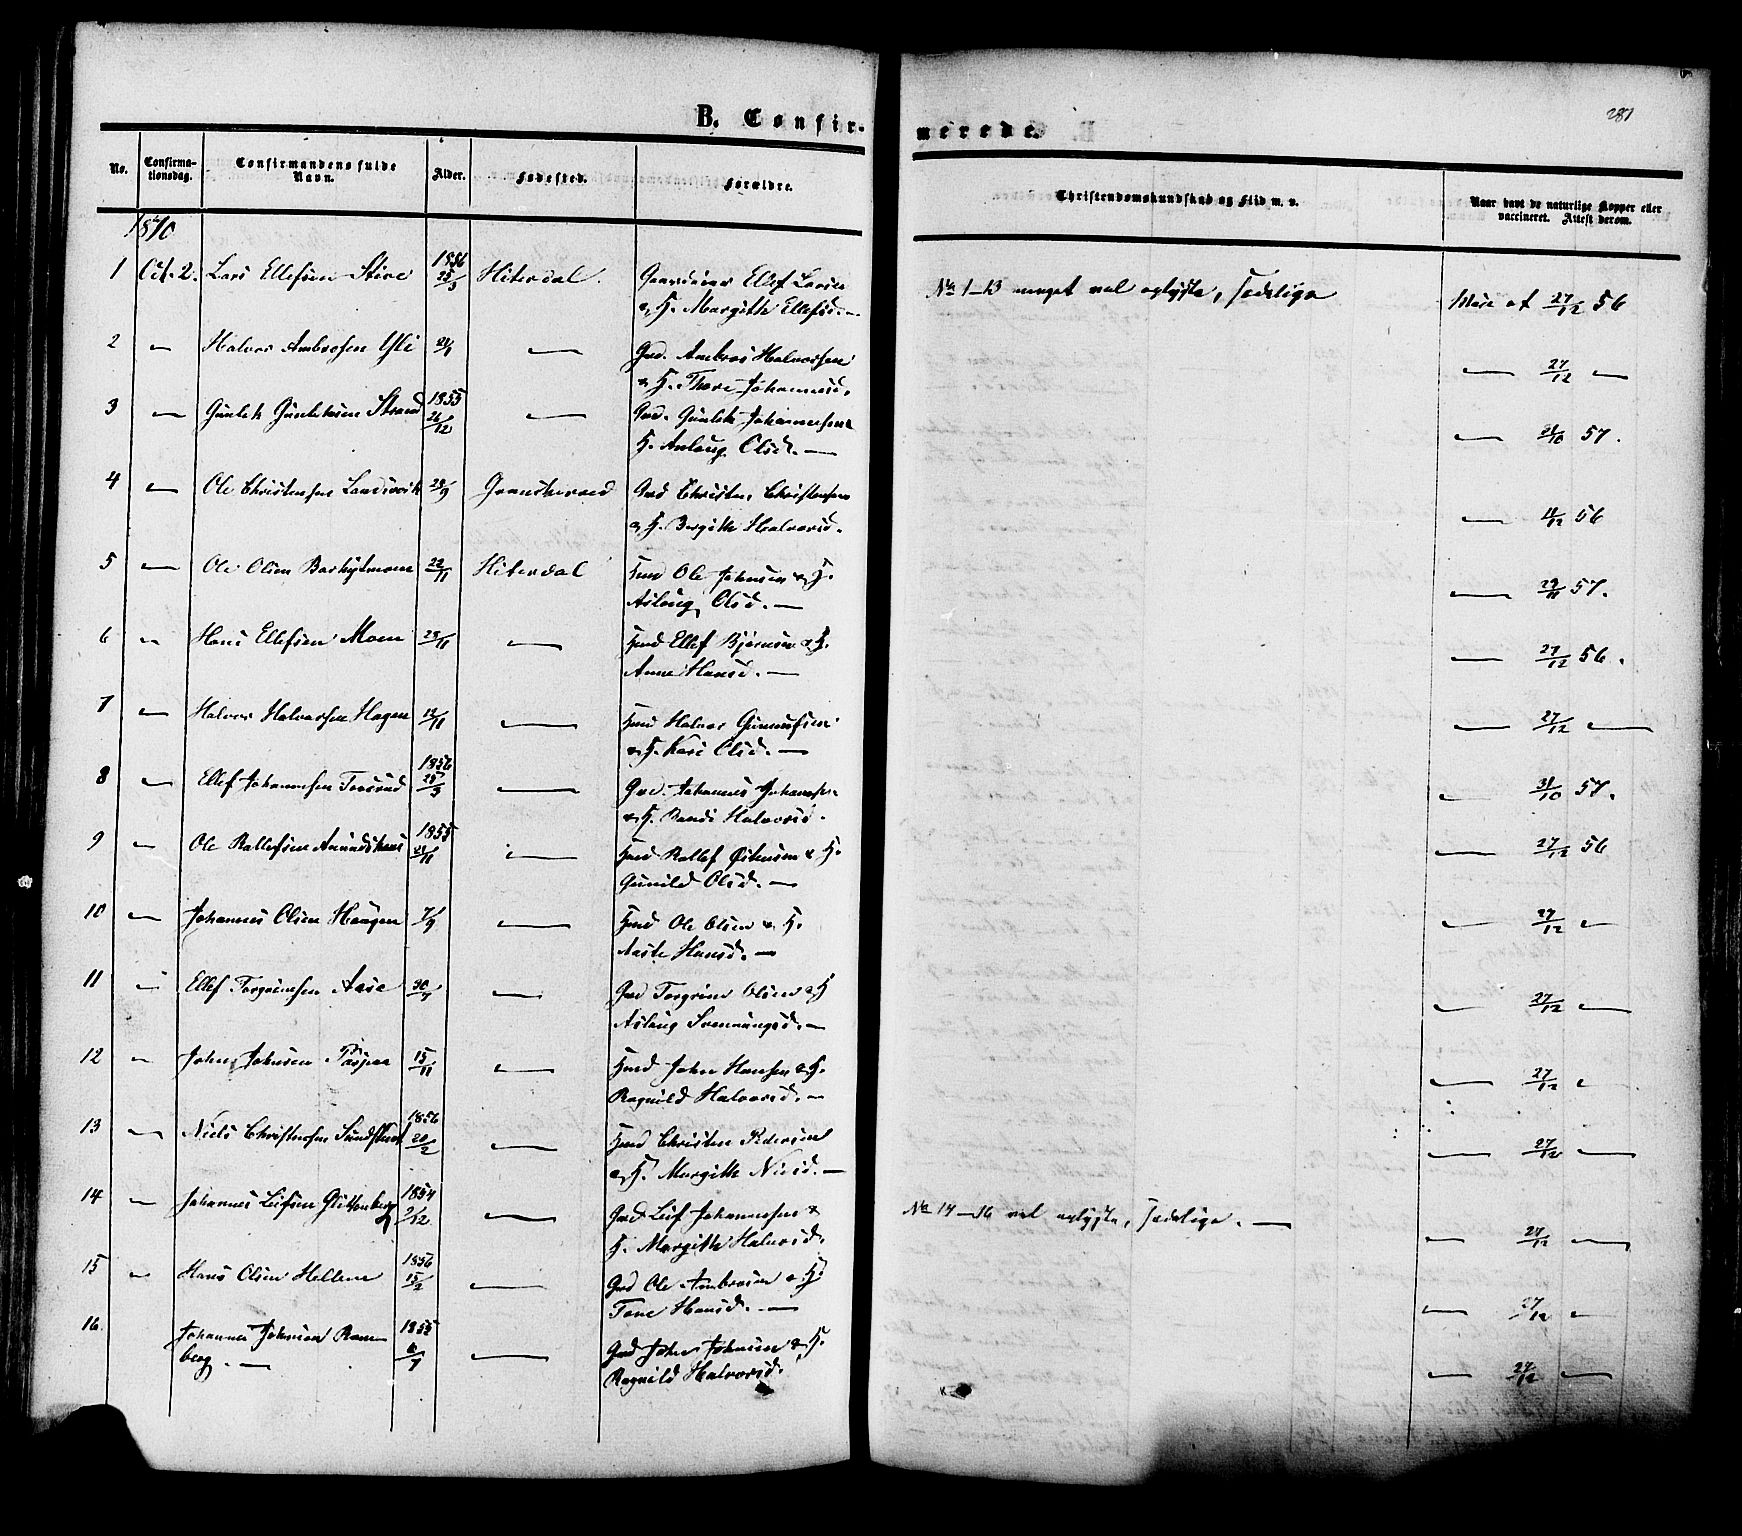 B. Confir-
merede.
281
No.
Confirma-
tionsdag.
Confirmandens fulde
Navn.
Alder.
Fødested.
Forældre.
Christendomskundskab og Flid m. v.
Naar havt de naturlige Kopper eller
vaccineret. Attest derom.
1870
1 Oct. 2. Lars Ellefsen 1856 25/3 Hiterdal. Gaardeier Ellef Larsen
& H. Margithe Ellefsd. —
No 1–13 meget vel oplyste, sædelige
27/12 56
2 — Halvor Ambrosen 21/1 — Grd. Ambros Halvorsen
& H. Thore Johannesd.
— 27/12 —
3 — Gunlek Gunleksen Strand 1855 26/12 — Grd. Gunlek Johannesen &
H. Aslaug Olsd. —
— 31/10 57.
4 — Ole Christensen Landsvik 28/9 Gransherred Grd Christen Christensen
& H. Bergithe Halvorsd.
— 11/12 56
5 — Ole Olsen 22/11 Hiterdal Hmd Ole Johnsen & H.
Aslaug Olsd. —
— 29/11 57.
6 — Hans Ellefsen Moen 23/11 — Hmd Ellef Bjørnsen & H.
Anne Hansd. —
— 27/12 56.
7 — Halvor Halvorsen Hagen 12/11 — Hmd Halvor Gunnufsen
& H. Kari Olsd. —
— 27/12 —
8 — Ellef Johannesen 1856 25/3 — Grd. Johannes Johannesen
& H. Halvorsd.
— 31/10 57.
9 — Ole Rollefsen 1855 23/11 — Hmd Rollef Østensen & H.
Gunild Olsd. —
— 27/12 56
10 — Johannes Olsen Haugen 7/9 — Hmd Ole Olsen & H.
Aaste Hansd. —
— 27/12 —
11 — Ellef Torgrimsen Aase 30/7 — Grd Torgrim Olsen & H
Aslaug Svenningsd. —
— 27/12 —
12 — John Johnsen 15/11 — Hmd John Hansen & H.
Ragnild Halvorsd. —
— 27/12 —
13 — Niels Christensen 1856 20/2 — Hmd Christen Pedersen
& H. Margithe Nielsd. —
— 27/12 —
14 — Johannes Leifsen Glittenberg 1854 2/12 — Grd Leif Johannesen &
H. Margithe Halvorsd.
No 14–16 vel oplyste, sædelige. —
— 27/12 —
15 — Hans Olsen Hellene 1856 15/2 — Grd Ole Ambrosen & H.
Tone Hansd. —
— 27/12 —
16. Johannes Johnsen Ram-
berg. — 1855 6/7 — Grd John Johnsen & H.
Ragnild Halvorsd.
— 27/12 —